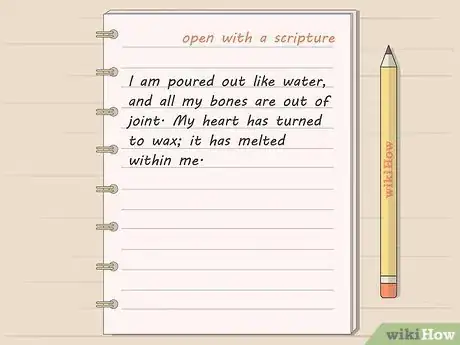 open with a scripture
I am poured out like water,
and all my bones are out of
joint. My heart has turned
to wax; it has melted
within me.
wikiHow
wikiHow